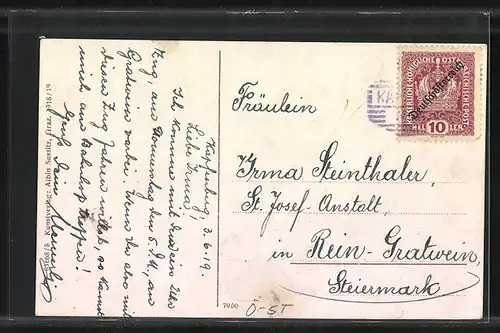 Kapfenberg, 3.6.19.
Liebe Irma!
Ich komme mit dem ein Uhr
Zug, am Donnerstag den 5. d. M., an
Gratwein vorbei. Wenn du also mit
diesem Zug fahren willst, so kannst
mich am Bahnhof treffen!
Gruß Dein
1168/8 Kunstverlag: Albin Sussitz, Graz. 1918/19
7060
Ö-ST
KA
KAISERLICHE KÖNIGLICHE ÖSTERREICHISCHE POST
Deutschösterreich
10
HELLER
Fräulein
Irma Steinthaler,
St. Josef-Anstalt,
in Rein-Gratwein,
Steiermark